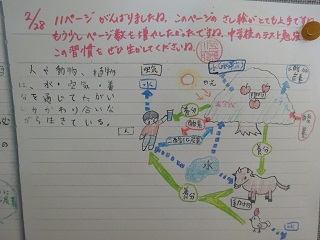 2/28
11ページがんばりましたね。このページのさし絵がとても上手です。
もう少しページ数を増やしたかったですね。中学校のテスト勉強に
この習慣をぜひ生かしてくださいね。
人や動物、植物
は、水・空気・養
分を通じてたがい
にかかわり合いな
がら生きている。
空気
水
養分
酸素
二酸化炭素
人
水
養分
養分
動物
水